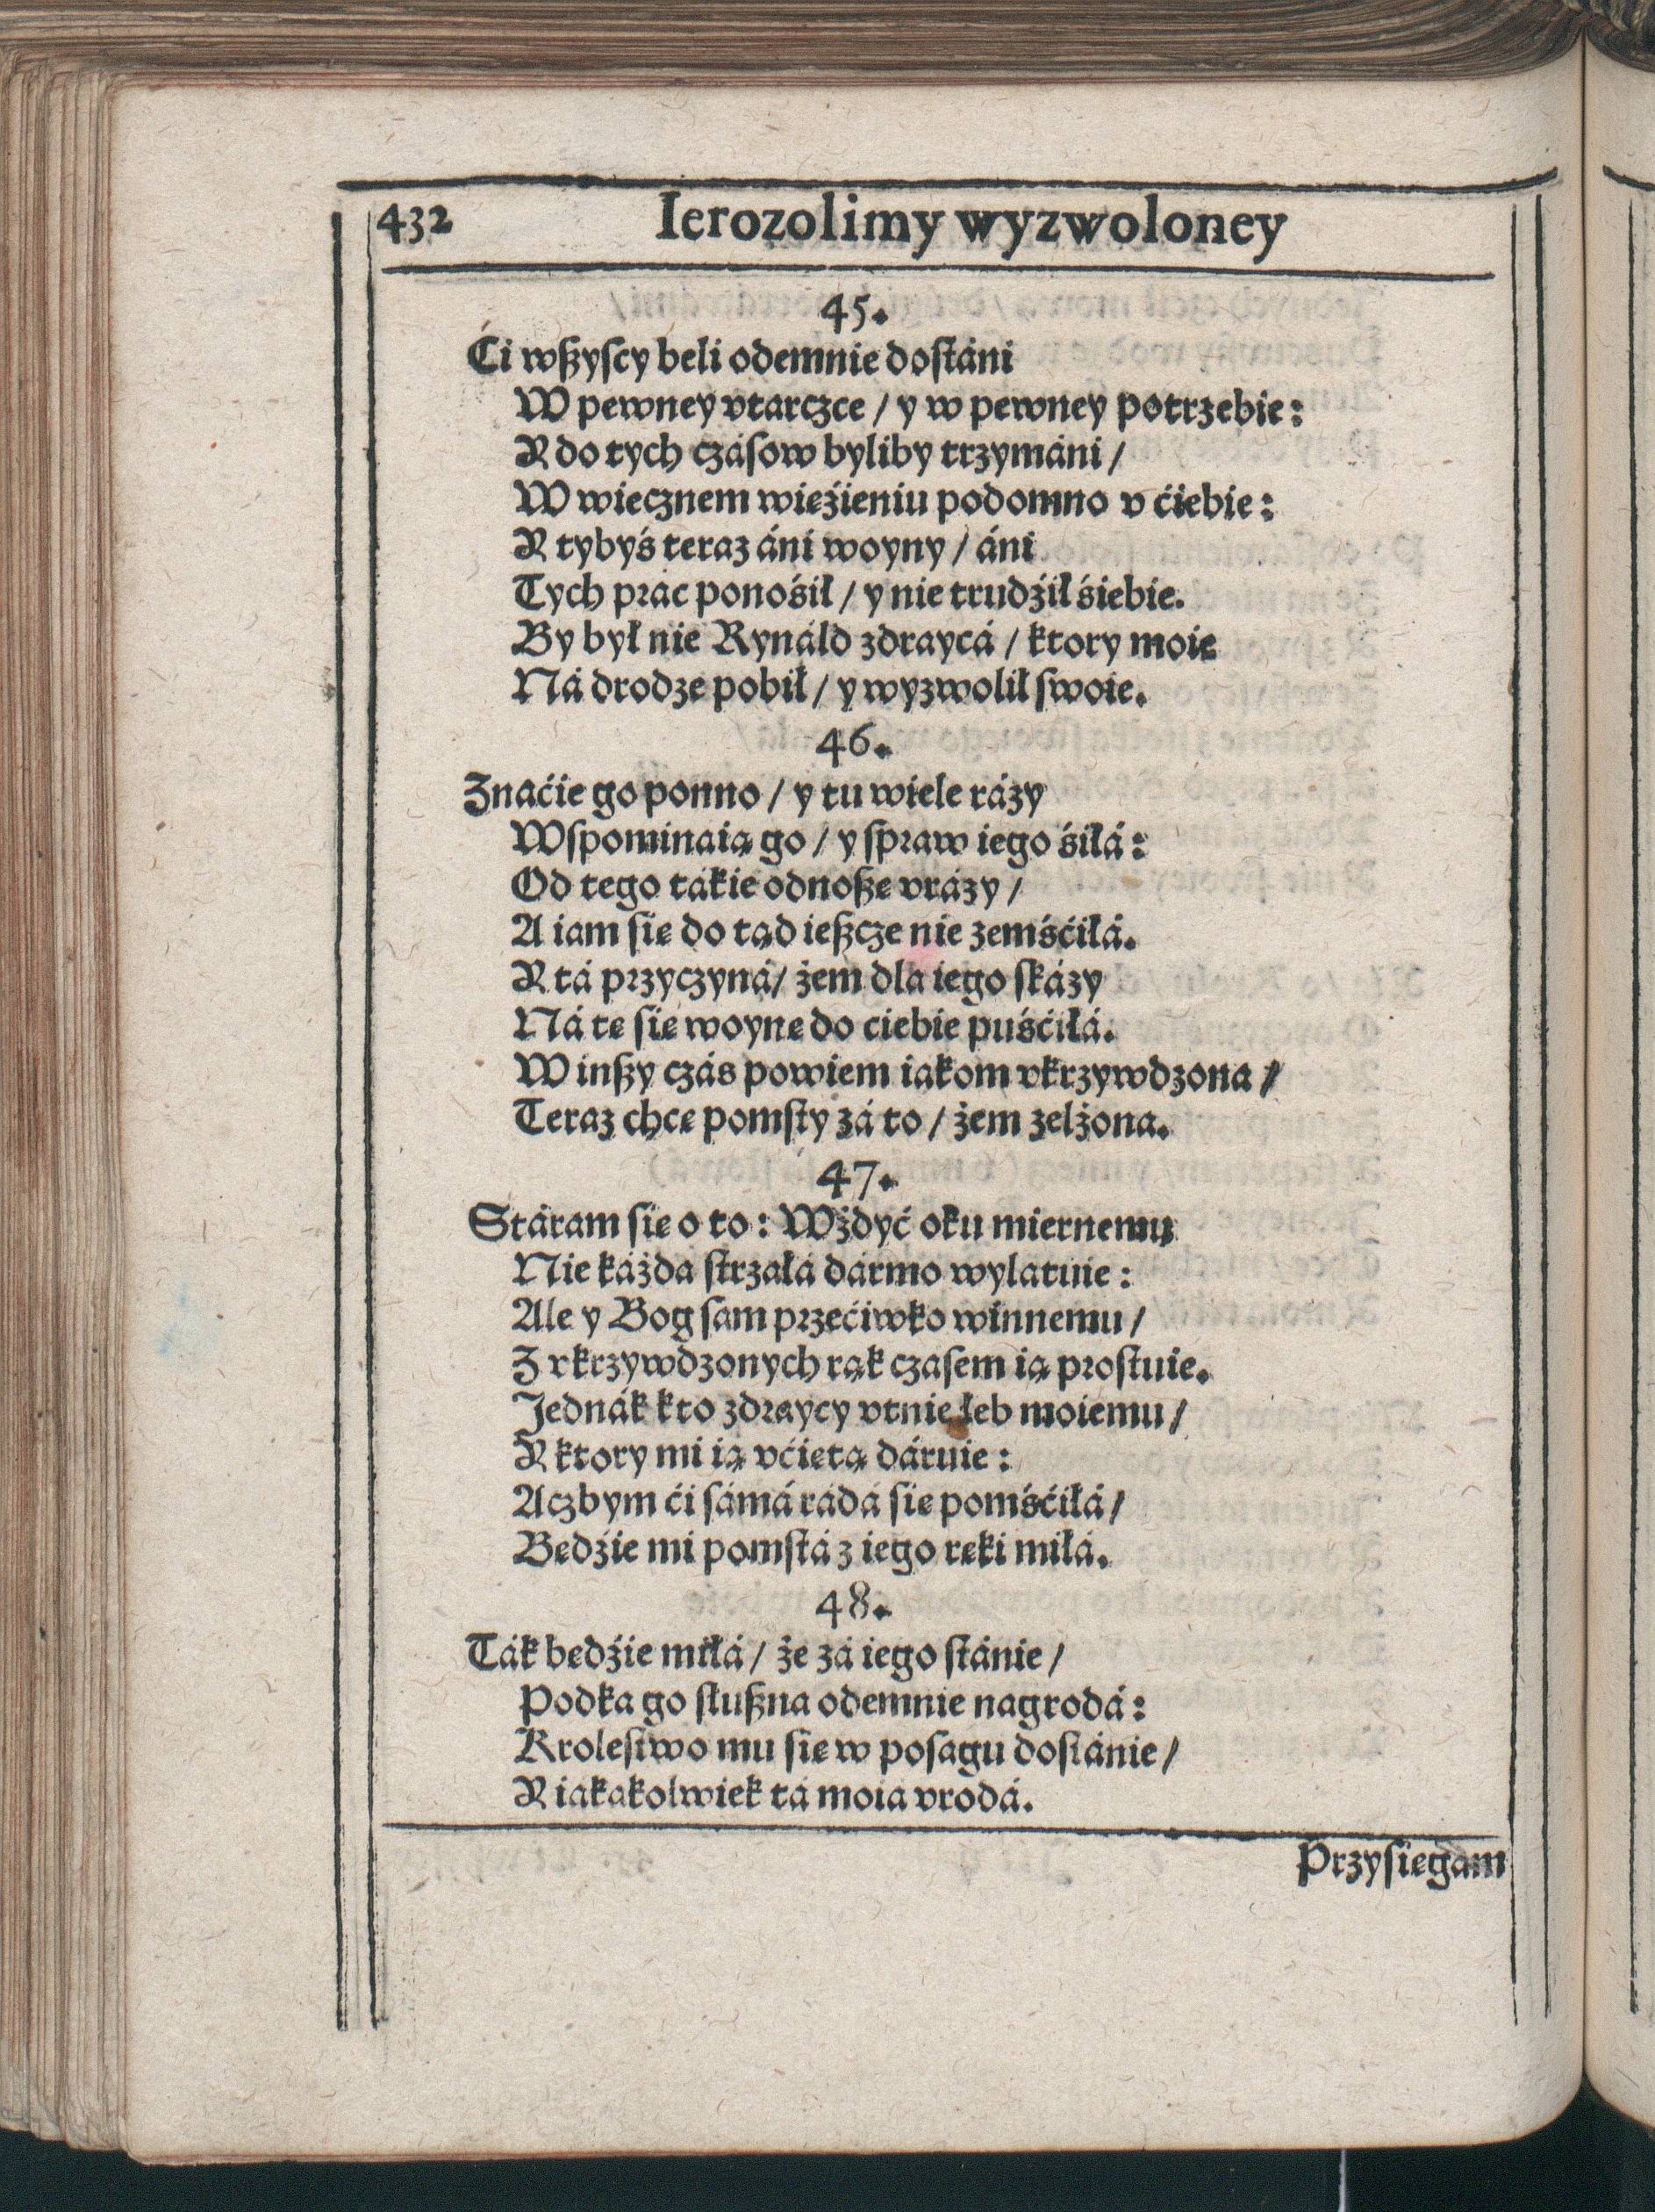 432 Ierozolimy wyzwoloney
45.
Ći wßyſcy beli odemnie doſtáni
W pewney vtarczce / y w pewney potrzebie:
Y do tych czáſow byliby trzymáni /
W wiecznem więźieniu podomno v ćiebie:
Y tybyś teraz áni woyny / áni
Tych prac ponośił / y nie trudźił śiebie.
By był nie Rynáld zdraycá / ktory moie
Ná drodze pobił / y wyzwolił ſwoie.
46.
Znaćie go ponno / y tu wiele rázy
Wſpominaią go / y ſpraw iego śiłá:
Od tego tákie odnoßę vrázy /
A iam ſię do tąd ießcze nie zemśćiłá.
Y tá przyczyná / żem dla iego ſkázy
Ná tę ſię woynę do ciebie puśćiłá.
W inßy czás powiem iakom vkrzywdzona /
Teraz chcę pomſty zá to / żem zelżona.
47.
Stáram ſię o to: Wżdyć oku miernemu
Nie káżda ſtrzałá dármo wylatuie:
Ale y Bog ſam przećiwko winnemu /
Z vkrzywdzonych rąk czaſem ią proſtuie.
Jednák kto zdraycy vtnie łeb moiemu /
Y ktory mi ią vćiętą dáruie:
Aczbym ći ſámá rádá ſię pomśćiłá /
Będźie mi pomſtá z iego ręki miłá.
48.
Ták będźie miłá / że zá iego ſtánie /
Podka go ſłußna odemnie nagrodá:
Kroleſtwo mu ſię w poſagu doſtánie /
Y iakakolwiek tá moiá vrodá.
Przyſięgam